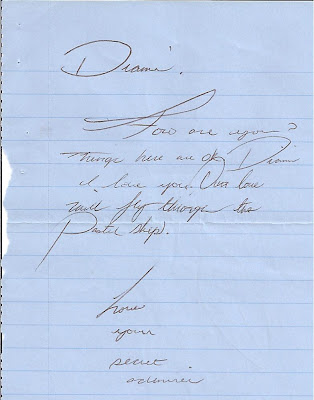 Diami.
How are you?
things here are ok Diami
I love you. Our love
will fly through the
Pastic ship.
Love
your
secret
admirer.